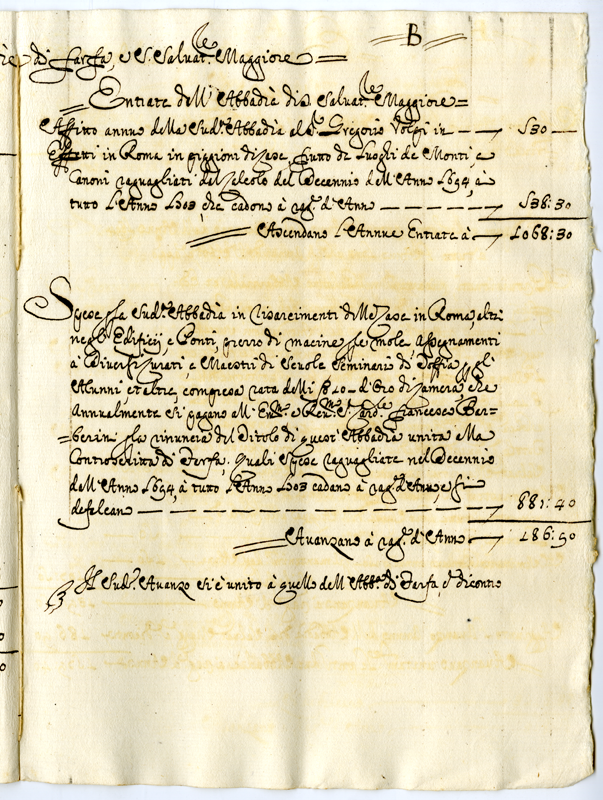 B
di Farfa, e S. Salvat.re Maggiore
Entrate dell'Abbadia di S. Salvat.re Maggiore
Affitto annuo della Sud.a Abbadia al S.r Gregorio Volpi in — 530 —
Effetti in Roma in piggioni di Case, frutto de Luoghi de Monti, e
Canoni raguagliati dal Calcolo del Decennio dell'Anno 1694, à
tutto L'Anno 1703 che cadono à rag.e d'Anno — 538:30
Ascendano L'Annue Entrate à — 1068:30
Spese p la Sud.a Abbadia in risarcimenti delle Case in Roma, altri
negl'Edificij, e Ponti, prezzo di macine p le mole Assegnamenti
à Diversi Curati e Maestri di Scuole Seminario di Toffia p gl'
Alunni et altre, compresa rata delli 840 d'Oro di Camera, che
Annualmente si pagano all' Em.mo e Rev.mo S. Card.le Francesco Bar=
=berini p la rinuncia del Titolo di quest'Abbadia unita alla
di Farfa. Quali Spese raguagliate nel Decennio
dell'Anno 1694, à tutto L'Anno 1703 cadano à rag.e d'Anno, e si
defalcano — 881:40
Avanzano à rag.e d'Anno — 186:90
Il Sud.o Avanzo si è unito à quello dell'Abb.a di Farfa, e di contro